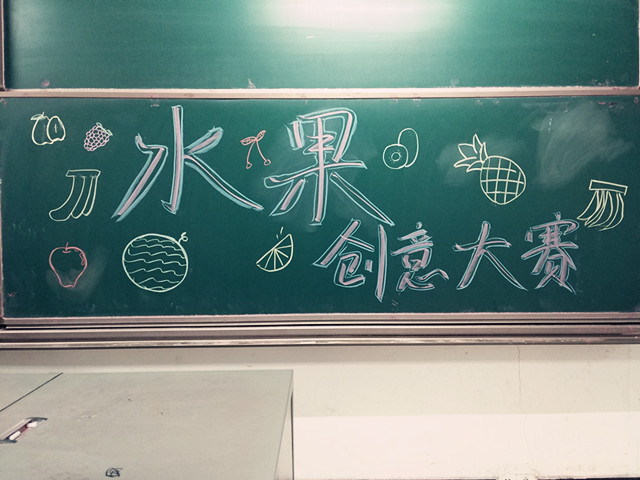 水果
创意大赛